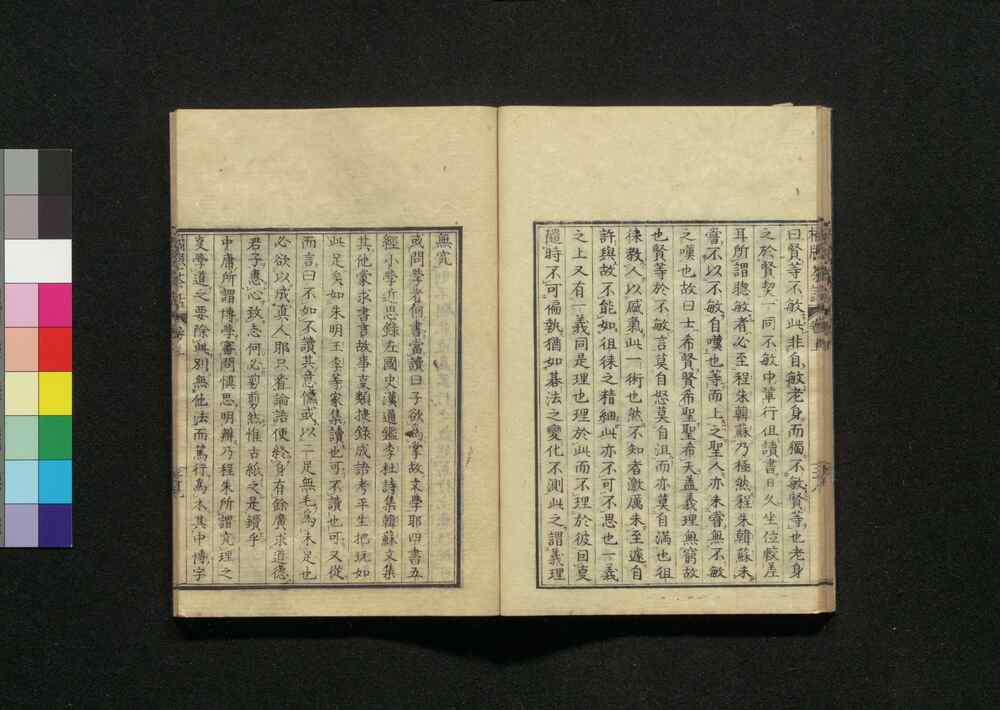 曰賢等不敏此非自敏老身而獨不敏賢等也老身
之於賢契一同不敏中輩行但讀書日久坐位較差
耳所謂聰敏者必至程朱韓蘇乃極然程朱韓蘇未
嘗不以不敏自嘆也等而上之聖人亦未嘗無不敏
之嘆也故曰士希賢賢希聖聖希天蓋義理無窮故
也賢等於不敏言莫自怒莫自沮而亦莫自滿也徂
徠教人以感氣此一術也然不知者激厲未至遽自
許與故不能如徂徠之精細此亦不可不思也一義
之上又有一義同是理也理於此而不理於彼日夏
隨時不可偏執猶如碁法之變化不測此之謂義理
無窮
或問學者何書當讀曰子欲為掌故文學耶四書五
經小學近思錄左國史漢通鑑李杜詩集韓蘇文集
其他蒙求書言故事事類捷錄成語考平生把玩如
此足矣如朱明王李等家集讀也可不讀也可又從
而言曰不如不讀其意儀或以一足無毛為未足也
必欲以成真人耶只看論語便終身有餘廣求道德
君子應心致志何必剪剪然惟古紙之是鑽乎
中庸所謂博學審問慎思明辨乃程朱所謂窮理之
事學道之要除此別無他法而篤行為本其中博字